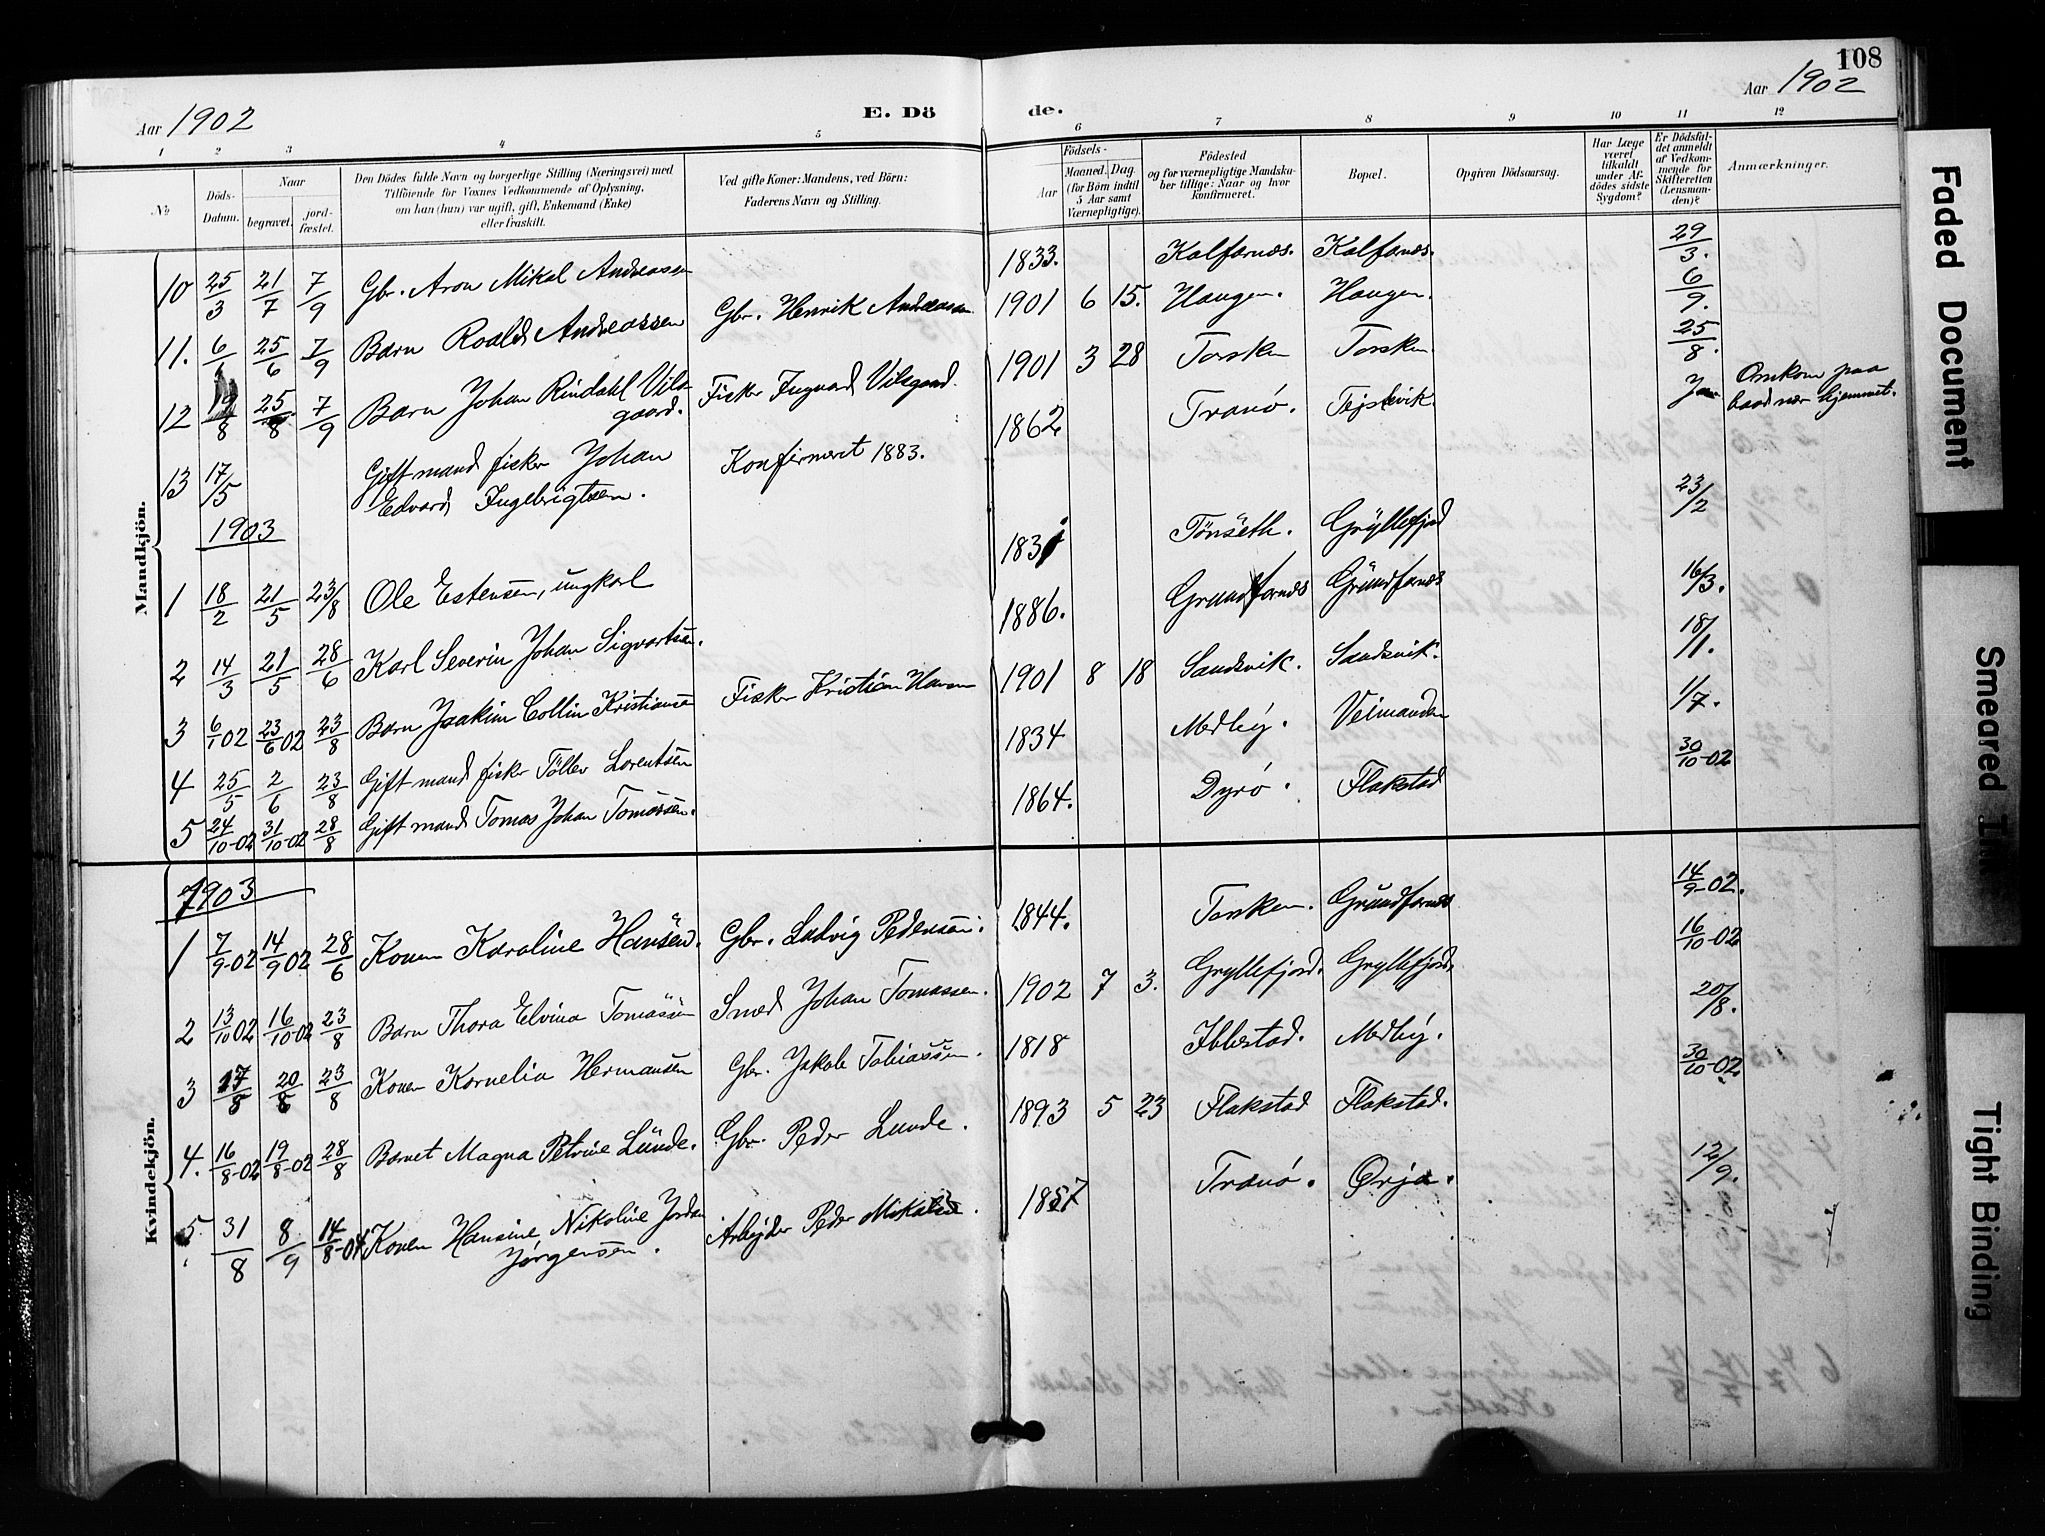 108
Aar 1902 E. Dö de. Aar 1902
1 2 3 4 5 6 7 8 9 10 11 12
№
Döds-Datum.
Naar
begravet.
jord-fæstet.
Den Dödes fulde Navn og borgerlige Stilling (Næringsvei) med
Tilföiende för Voxnes Vedkommende af Oplysning,
om han (hun) var ugift, gift, Enkemand (Enke)
eller fraskilt.
Ved gifte Koner: Mandens, ved Börn:
Faderens Navn og Stilling.
Födsels-
Aar
Maaned. Dag
(for Börn indtil
5 Aar samt
Værnepligtige).
Födested
og for værnepligtige Mandska-
ber tillige: Naar og hvor
konfirmeret.
Bopæl.
Opgiven Dödsaarsag.
Har Læge
været
tilkaldt
under Af-
dödes sidste
Sygdom?
Er Dödsfal-
det anmeldt
af Vedkom-
mende for
Skifteretten
(Lensman-
den)?
Anmærkninger.
Mandkjön.
10 25/3 21/7 7/9 Gbr. Aron Mikal Andreassen 1833. Kalfarnes. Kalfarnes. 29/3.
11. 6/6 25/6 7/9 Barn Roald Andreassen Gbr. Henrik Andreassen 1901 6 15. Haugen. Haugen. 6/9.
12 19/8 25/8 7/9 Barn Johan Rindahl Vils-
gaard. Fisker Ingvad Vilsgaard. 1901 3 28 Torsken Torsken 25/8.
13 17/5 Gift mand fisker Johan
Edvard Ingebrigtsen. Konfirmert 1883. 1862 Tranö. Tejstevik. Ja Omkom paa
baad nær hjemmet.
1903
1 18/2 21/5 23/8 Ole Estensen, ungkarl Tönseth. Gryllefjord 23/2
2 14/3 21/5 28/6 Karl Severin Johan Sigvartsen. 1886. Grundfarnes Grundfarnes 16/3.
3 6/1 02 23/6 02 23/8 Barn Joakim Collin Kristiansen Fisker Kristian Hansen 1901 8 18 Sandsvik. Sandsvik. 18/1.
4 25/5 2/6 23/8 Gift mand fisker Töllev Lorentsen 1834 Medby. Veimanden 1/7.
5 24/10-02 31/10-02 28/8 Gift mand Tomas Johan Tomassen. 1864. Dyrö. Flakstad 30/10-02
Kvindekjön.
1903
1 7/9-02 14/9 02 28/6 Konen Karoline Hansen. Gbr. Ludvig Pedersen. 1844. Torsken. Grundfarnes 14/9-02.
2 13/10 02 16/10-02 23/8 Barn Thora Elvina Tomassen Smed Johan Tomassen. 1902 7 3. Gryllefjord. Gryllefjord. 16/10-02
3 17/8 20/8 23/8 Konen Kornelia Hermansen Gbr. Jakob Tobiassen. 1818 Ibbestad. Medby. 20/8.
4. 16/8-02 19/8-02 28/8 Barnet Magna Petrine Lunde. Gbr. Peder Lunde. 1893 5 23 Flakstad Flakstad. 30/10-02
5 31/8 8/9 14/8-04 Konen Hansine Nikoline Jordan
Jørgensen. Arbejder Peder 1857 Tranö. Ørja. 12/9.
Faded Document
Smeared Ink
Tight Binding